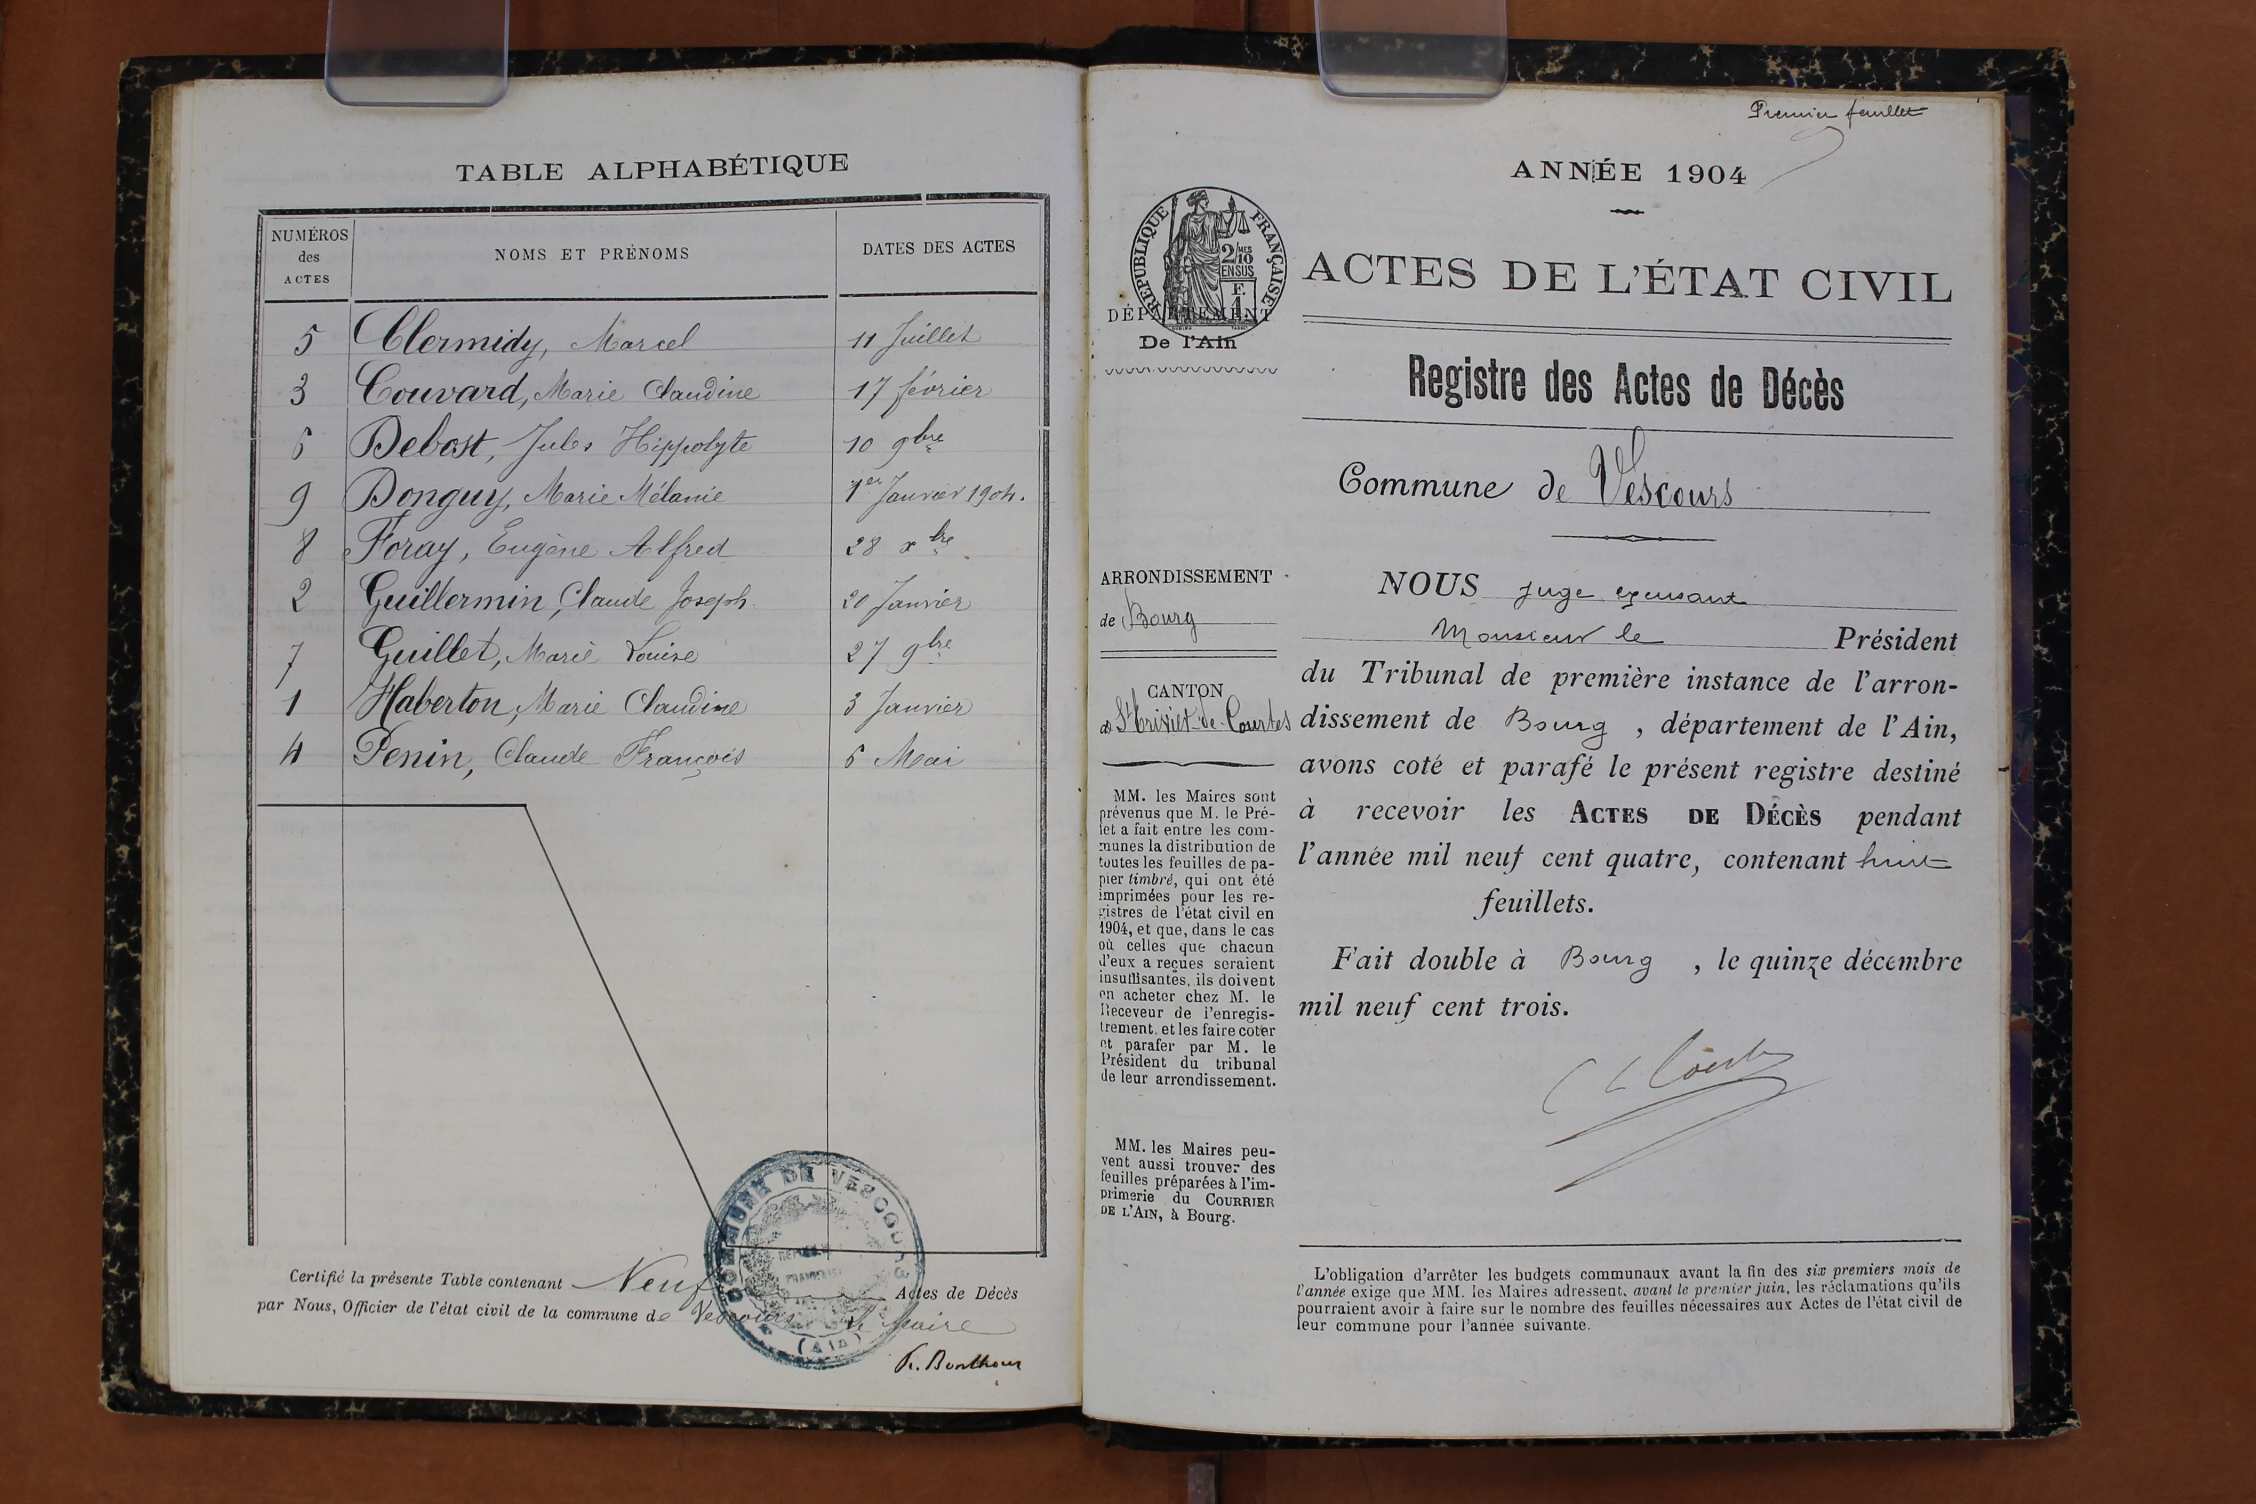 TABLE ALPHABÉTIQUE
NUMÉROS des ACTES NOMS ET PRÉNOMS DATES DES ACTES
5 Clermidy, Marcel 11 Juillet
3 Couvard, Marie Claudine 17 février
6 Debost, Jules Hippolyte 10 9bre
9 Donguy, Marie Mélanie 1er Janvier 1904.
8 Foray, Eugène Alfred 28 xbre
2 Guillermin, Claude Joseph 20 Janvier
7 Guillet, Marie Louise 27 9bre
1 Haberton, Marie Claudine 3 Janvier
4 Penin, Claude François 6 Mai
Certifié la présente Table contenant Neuf Actes de Décès
par Nous, Officier de l'état civil de la commune de Vescours le Maire
COMMUNE DE VESCOURS
(Ain)
Premier feuillet
ANNÉE 1904
RÉPUBLIQUE FRANÇAISE
2/10 MES
EN SUS
F. 1
DÉPARTEMENT
De l'Ain
ACTES DE L'ÉTAT CIVIL
Registre des Actes de Décès
Commune de Vescours
ARRONDISSEMENT
de Bourg
CANTON
de St Trivier-de-Courtes
MM. les Maires sont
prévenus que M. le Pré-
fet a fait entre les com-
munes la distribution de
toutes les feuilles de pa-
pier timbré, qui ont été
imprimées pour les re-
gistres de l'état civil en
1904, et que, dans le cas
où celles que chacun
d'eux a reçues seraient
insuffisantes, ils doivent
en acheter chez M. le
Receveur de l'enregis-
trement, et les faire coter
et parafer par M. le
Président du tribunal
de leur arrondissement.
MM. les Maires peu-
vent aussi trouver des
feuilles préparées à l'im-
primerie du COURRIER
DE L'AIN, à Bourg.
NOUS juge excusant
Monsieur le Président
du Tribunal de première instance de l'arron-
dissement de Bourg, département de l'Ain,
avons coté et parafé le présent registre destiné
à recevoir les ACTES DE DÉCÈS pendant
l'année mil neuf cent quatre, contenant huit
feuillets.
Fait double à Bourg, le quinze décembre
mil neuf cent trois.
L'obligation d'arrêter les budgets communaux avant la fin des six premiers mois de
l'année exige que MM. les Maires adressent, avant le premier juin, les réclamations qu'ils
pourraient avoir à faire sur le nombre des feuilles nécessaires aux Actes de l'état civil de
leur commune pour l'année suivante.